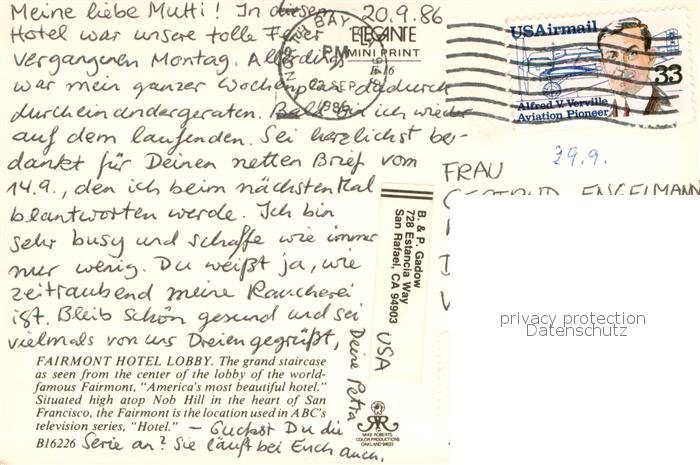 Meine liebe Mutti! In diesem 20.9.86
Hotel war unsere tolle Feier
vergangenen Montag. Allerdings
war mein ganzer Wochenplan dadurch
durcheinandergeraten. Bald bin ich wieder
auf dem laufenden. Sei herzlichst be-
dankt für Deinen netten Brief vom
14.9., den ich beim nächsten Mal
beantworten werde. Ich bin
sehr busy und schaffe wie immer
nur wenig. Du weißt ja, wie
zeitraubend meine Raucherei
ist. Bleib schön gesund und sei
vielmals von uns Dreien gegrüßt,
Deine Petra
FAIRMONT HOTEL LOBBY. The grand staircase
as seen from the center of the lobby of the world-
famous Fairmont, "America's most beautiful hotel."
Situated high atop Nob Hill in the heart of San
Francisco, the Fairmont is the location used in ABC's
television series, "Hotel."
– Guckst Du die
B16226
Serie an? Sie läuft bei Euch auch.
ELEGANTE
MINI PRINT
BAY
PM
SEP
1986
USAirmail
33
Alfred V. Verville
Aviation Pioneer
29.9.
FRAU
GERTRUD ENGELMANN
B. & P. Gadow
728 Estancia Way
San Rafael, CA 94903
USA
MIKE ROBERTS
COLOR PRODUCTIONS
OAKLAND 94623
privacy protection
Datenschutz